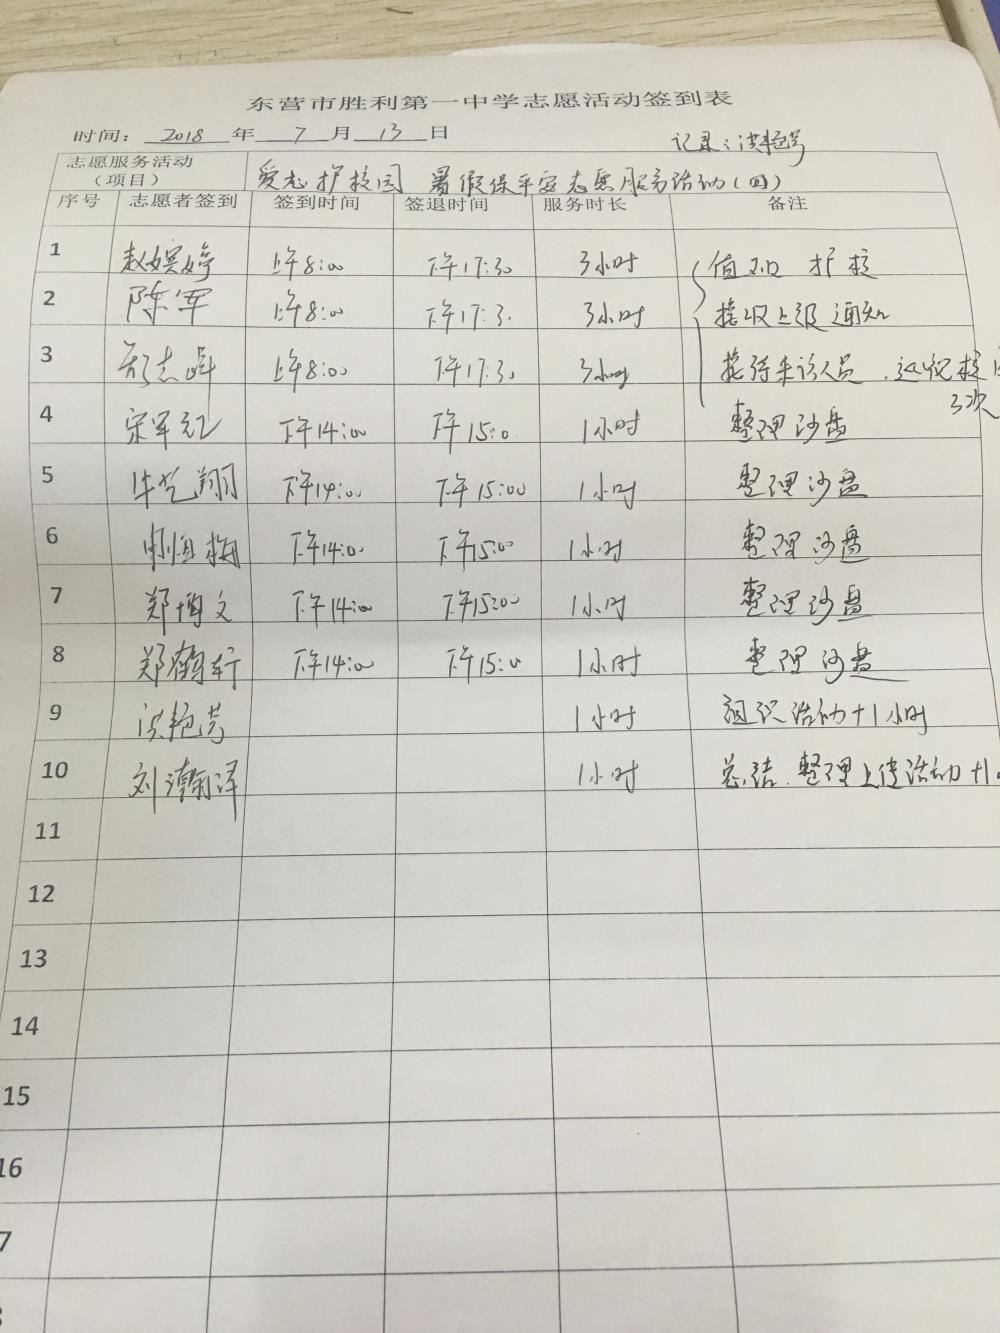 东营市胜利第一中学志愿活动签到表
时间: 2018 年 7 月 13 日 记录:洪艳芳
志愿服务活动
(项目) 爱志护校园 暑假保平安志愿服务活动(四)
序号 志愿者签到 签到时间 签退时间 服务时长 备注
1 赵嫔婷 上午8:00 下午17:30 3小时 值班 护校
2 陈军 上午8:00 下午17:3. 3小时 接收上级通知
3 志 上午8:00 下午17:30 3小时 接待来访人员. 巡视校
3次
4 宋军红 下午14:00 下午15:0 1小时 整理沙盘
5 牛艺翔 下午14:00 下午15:00 1小时 整理沙盘
6 梅 下午14:00 下午15:00 1小时 整理沙盘
7 郑博文 下午14:00 下午15:00 1小时 整理沙盘
8 郑鹤轩 下午14:00 下午15:0 1小时 整理沙盘
9 洪艳芳 1小时 组织活动+1小时
10 刘瀚泽 1小时 总结.整理上传活动+1
11
12
13
14
15
16
7